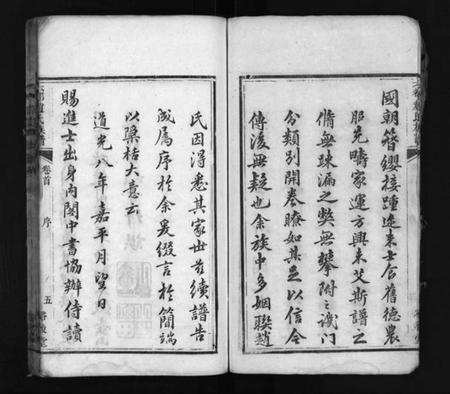 國朝簪纓接踵迨來士食舊德農
服先疇家運方興未艾斯譜之
脩無踈漏之獘無攀附之譏門
分類別開卷瞭如其足以信今
傳後無疑也余族中多姻聯趙
氏因得悉其家世茲續譜告
成屬序於余爰綴言於簡端
以櫽栝大意云
道光八年嘉平月望日
賜進士出身內閣中書協辦侍讀
卷首
序
五